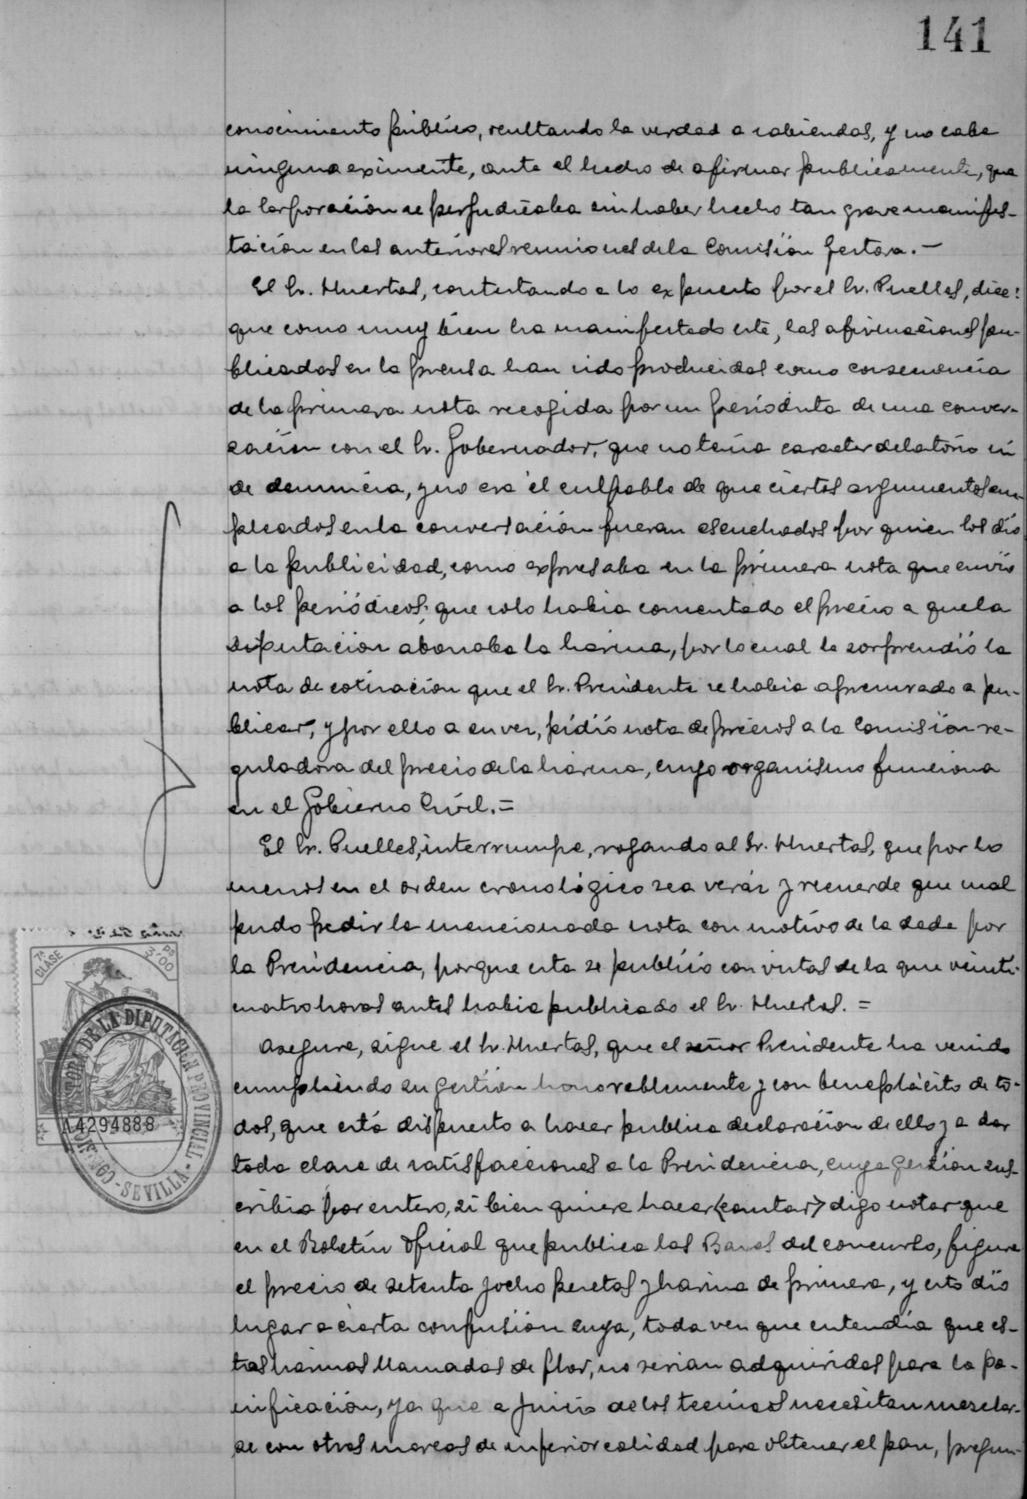 141
conocimiento público, ocultando la verdad a sabiendas, y no cabe
ninguna eximente, ante el hecho de afirmar publicamente, que
la Corporación se perjudicaba sin haber hecho tan grave manifes-
tación en las anteriores reuniones de la Comisión Gestora.-
El Sr. Huertas, contestando a lo expuesto por el Sr. Puelles, dice:
que como muy bien ha manifestado este, las afirmaciones pu-
blicadas en la prensa han sido producidas como consecuencia
de la primera nota recogida por un periodista de una conver-
sación con el Sr. Gobernador, que no tenia caracter delatorio ni
de denuncia, y no era él culpable de que ciertos argumentos em-
pleados en la conversación fueran escuchados por quien los dió
a la publicidad, como expresaba en la primera nota que envió
a los periódicos; que solo habia comentado el precio a que la
Diputación abonaba la harina, por lo cual le sorprendió la
nota de cotización que el Sr. Presidente se habia apresurado a pu-
blicar, y por ello a su vez, pidió nota de precios a la Comisión re-
guladora del precio de la harina, cuyo organismo funciona
en el Gobierno Civil.=
El Sr. Puelles, interrumpe, rogando al Sr. Huertas, que por lo
menos en el orden cronológico sea veraz y recuerde que mal
pudo pedir la mencionada nota con motivo de la dada por
la Presidencia, porque esta se publicó con vistas de la que veinti-
cuatro horas antes habia publicado el Sr. Huertas.=
Asegura, sigue el Sr. Huertas, que el señor Presidente ha venido
cumpliendo su gestión honorablemente y con beneplácito de to-
dos, que está dispuesto a hacer publica declaración de ello y a dar
toda clase de satisfacciones a la Presidencia, cuya gestión sus-
cribia por entero, si bien quiere hacer <contar> digo notar que
en el Boletín Oficial que publica las Bases del concurso, figura
el precio de setenta y ocho pesetas y harina de primera, y esto dió
lugar a cierta confusión suya, toda vez que entendía que es-
tas harinas llamadas de flor, no serian adquiridas para la pa-
nificación, ya que a juicio de los tecnicos necesitan mezclar-
se con otras marcas de inferior calidad para obtener el pan, pregun-
7ª CLASE
PS 3'00
A4294888
GESTORA DE LA DIPUTACIÓN PROVINCIAL
SEVILLA